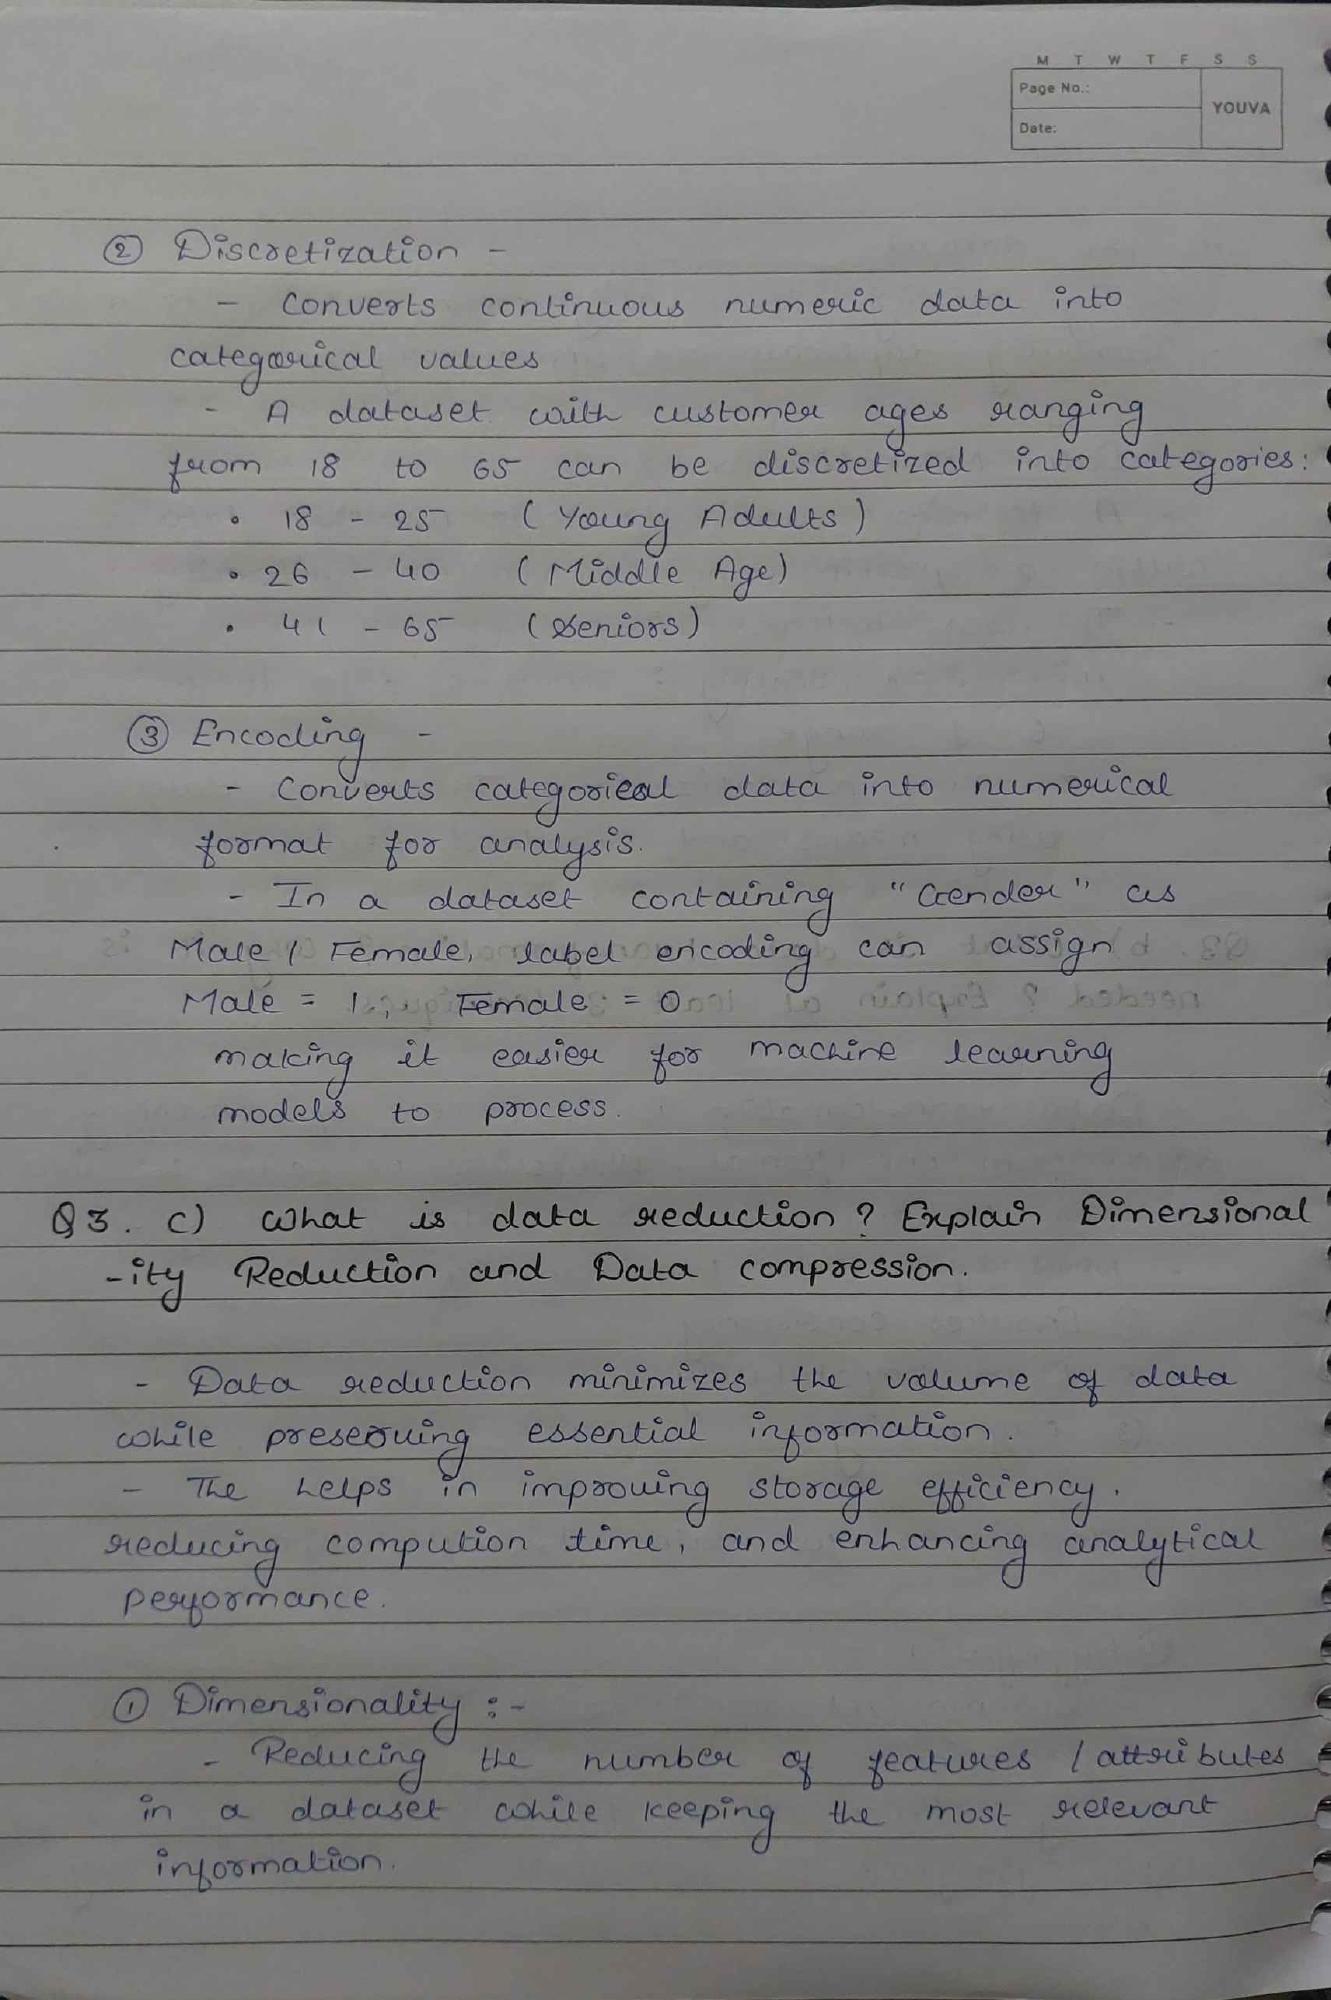 M T W T F S S
Page No.:
YOUVA
Date:
② Discretization -
- Converts continuous numeric data into
categorical values
- A dataset with customer ages ranging
from 18 to 65 can be discretized into categories:
• 18 - 25 (Young Adults)
• 26 - 40 (Middle Age)
• 41 - 65 (Seniors)
③ Encoding -
- Converts categorical data into numerical
format for analysis.
- In a dataset containing "Gender" as
Male / Female, label encoding can assign
Male = 1, Female = 0
making it easier for machine learning
models to process.
Q3. c) What is data reduction? Explain Dimensional
-ity Reduction and Data compression.
- Data reduction minimizes the volume of data
while preserving essential information.
- The helps in improving storage efficiency.
reducing compution time, and enhancing analytical
performance.
① Dimensionality :-
- Reducing the number of features / attributes
in a dataset while keeping the most relevant
information.